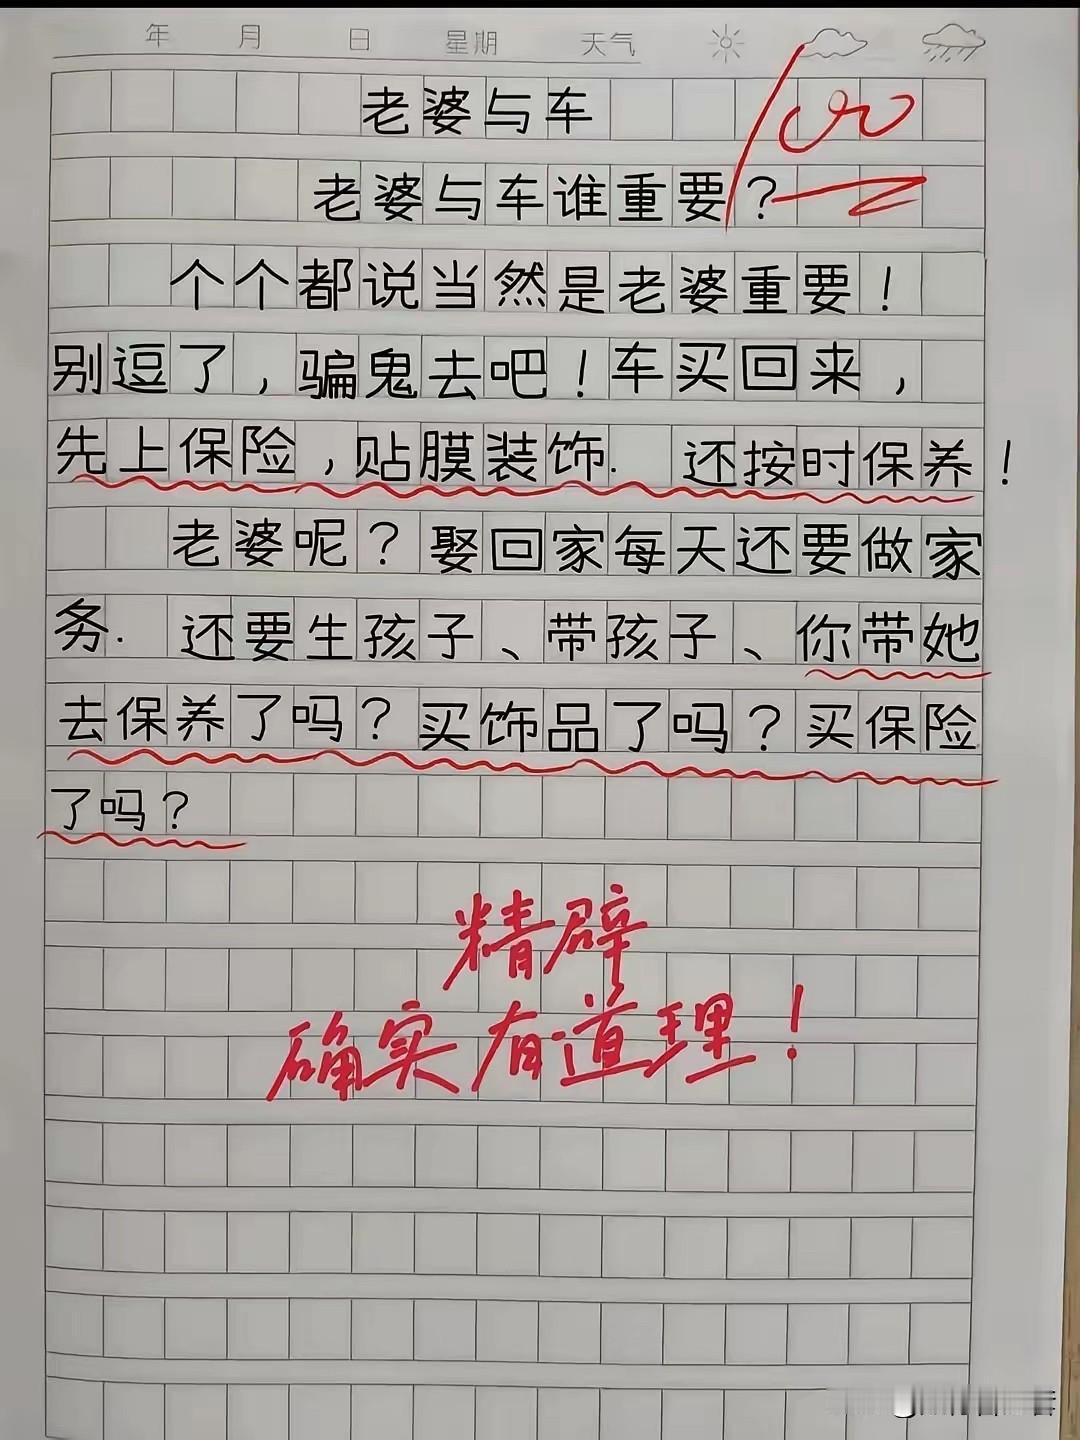 年 月 日 星期 天气
老婆与车
100
老婆与车谁重要？
个个都说当然是老婆重要！
别逗了，骗鬼去吧！车买回来，
先上保险，贴膜装饰. 还按时保养！
老婆呢？娶回家每天还要做家
务. 还要生孩子、带孩子、你带她
去保养了吗？买饰品了吗？买保险
了吗？
精辟
确实有道理！